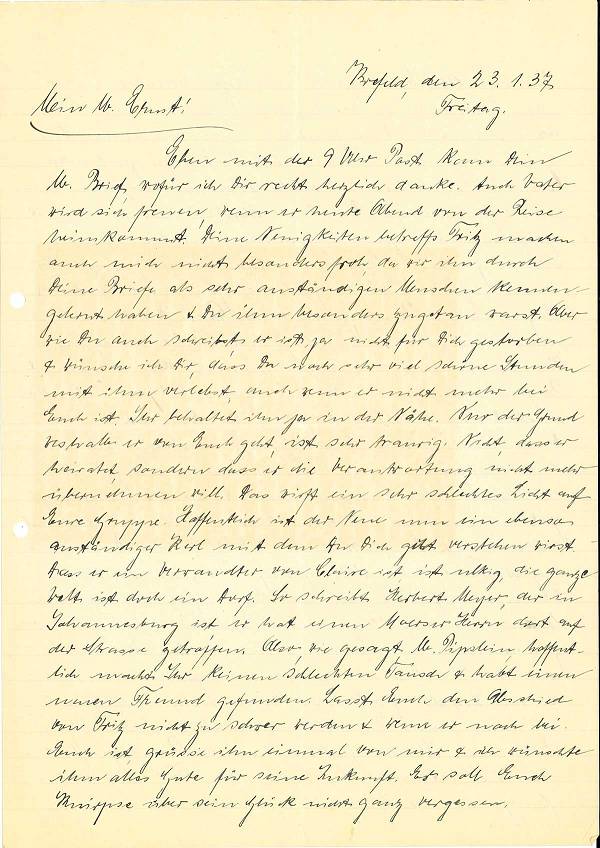 Krefeld, den 23.1.37
Freitag.
Mein lb. Ernst!
Eben mit der 9 Uhr Post kam Dein
lb. Brief, wofür ich Dir recht herzlich danke. Auch Vater
wird sich freuen, wenn er heute Abend von der Reise
heimkommt. Deine Neuigkeiten betreffs Fritz machen
auch mich nicht besonders froh, da wir ihn durch
Deine Briefe als sehr anständigen Menschen kennen-
gelernt haben & Du ihm besonders zugetan warst. Aber
wie Du auch schreibst er ist ja nicht für Dich gestorben
& wünsche ich Dir, dass Du noch sehr viel schöne Stunden
mit ihm verlebst, auch wenn er nicht mehr bei
Euch ist. Ihr behaltet ihn ja in der Nähe. Nur der Grund
weshalb er von Euch geht, ist sehr traurig. Nicht, dass er
heiratet sondern dass er die Verantwortung nicht mehr
übernehmen will. Das wirft ein sehr schlechtes Licht auf
Eure Gruppe. Hoffentlich ist der Neue nun ein ebenso
anständiger Kerl mit dem Du Dich gut verstehen wirst.
Dass er ein Verwandter von Claire ist ist ulkig, die ganze
Welt ist doch ein Dorf. So schreibt Herbert Meyer, der in
Johannesburg ist er hat einen Moerser Herrn dort auf
der Strasse getroffen. Also, wie gesagt lb. Pipslein hoffent-
lich macht Ihr keinen schlechten Tausch & habt einen
neuen Freund gefunden. Lasst Euch den Abschied
von Fritz nicht zu schwer werden & wenn er noch bei
Euch ist, grüsse ihn einmal von mir & ich wünschte
ihm alles Gute für seine Zukunft. Er soll Euch
Knirpse über sein Glück nicht ganz vergessen.